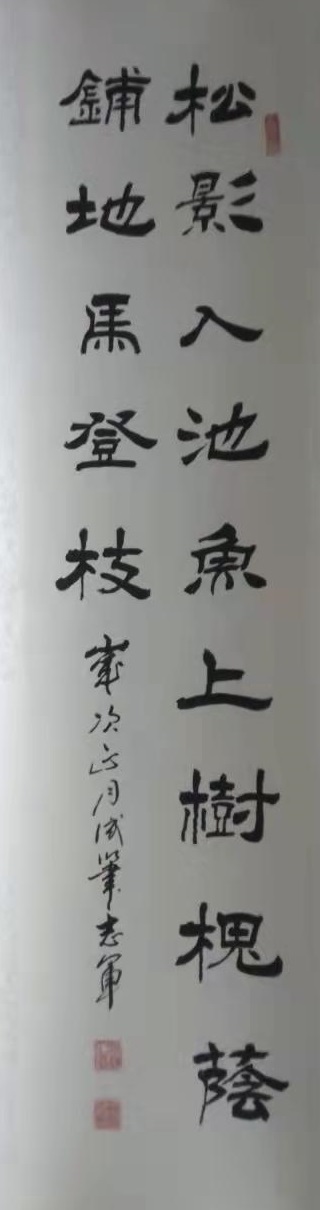 松影入池魚上樹槐蔭
鋪地馬登枝
歲次正月試筆志軍